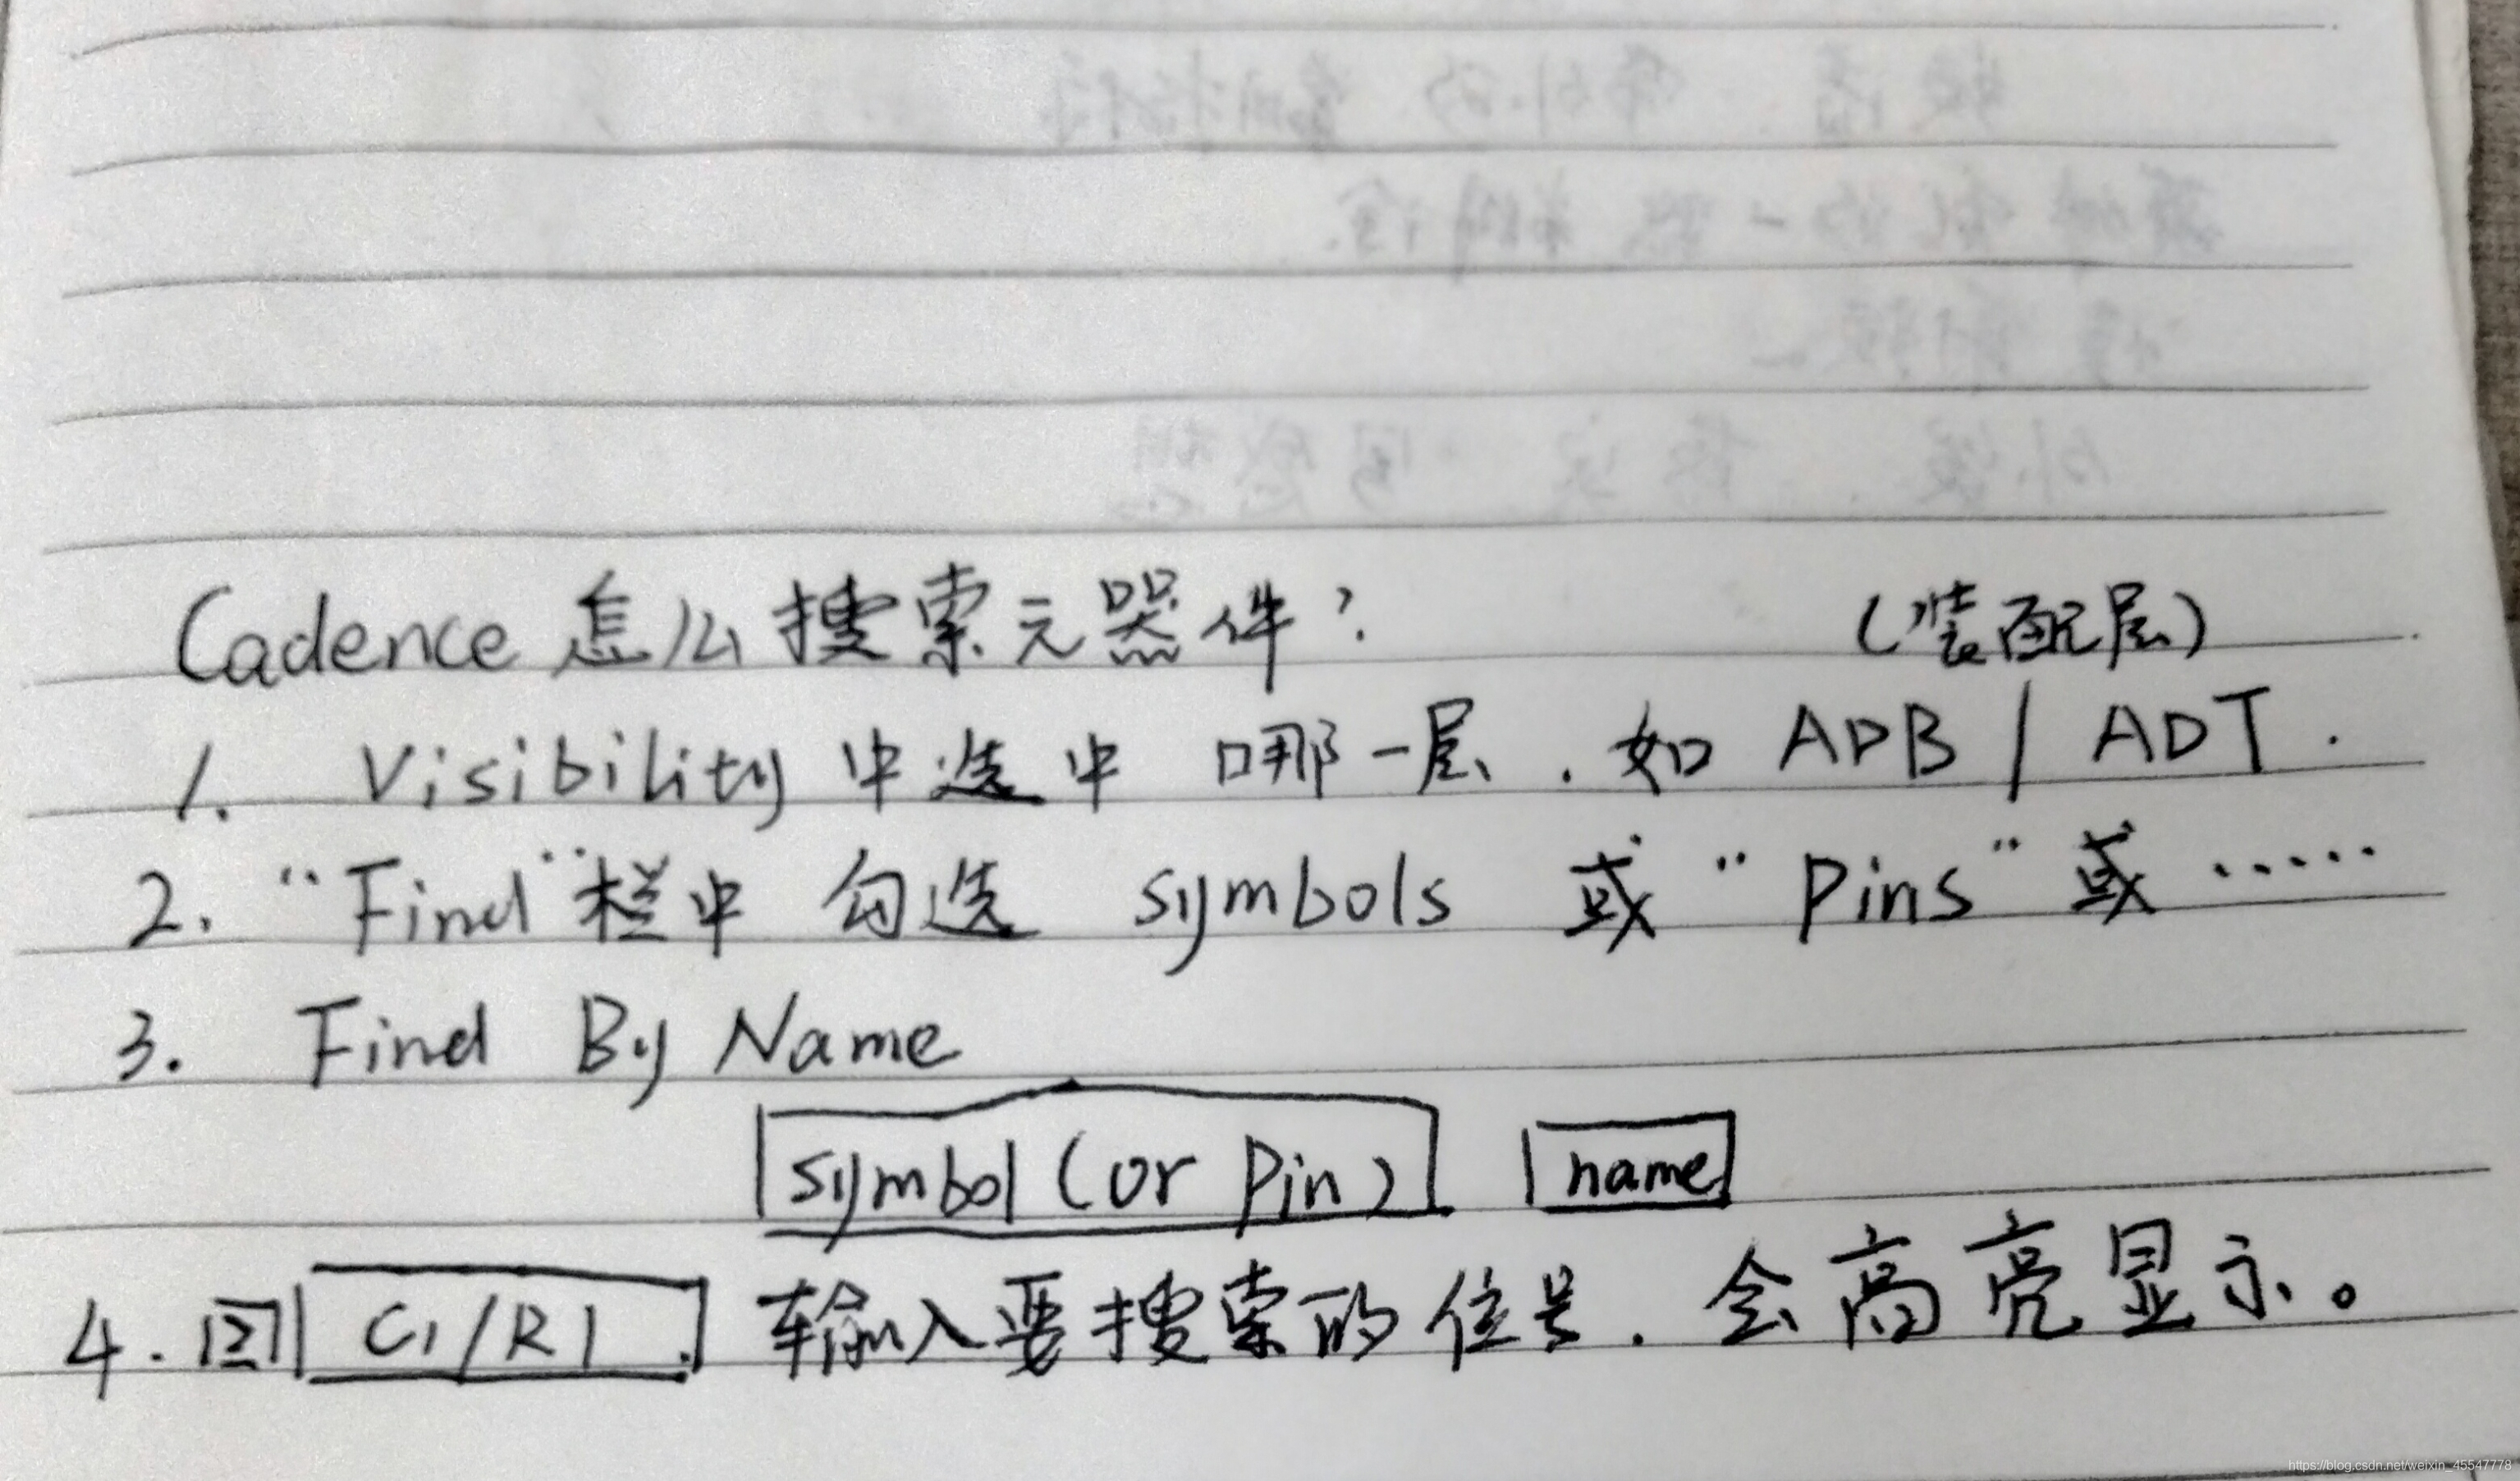 Cadence 怎么搜索元器件？ （装配层）
1. Visibility 中选中 哪一层．如 ADB / ADT.
2. “Find”栏中 勾选 symbols 或“Pins”或……
3. Find By Name
symbol (or Pin) name
4. C1/R1 输入要搜索的位号．会高亮显示。
https://blog.csdn.net/weixin_45547778